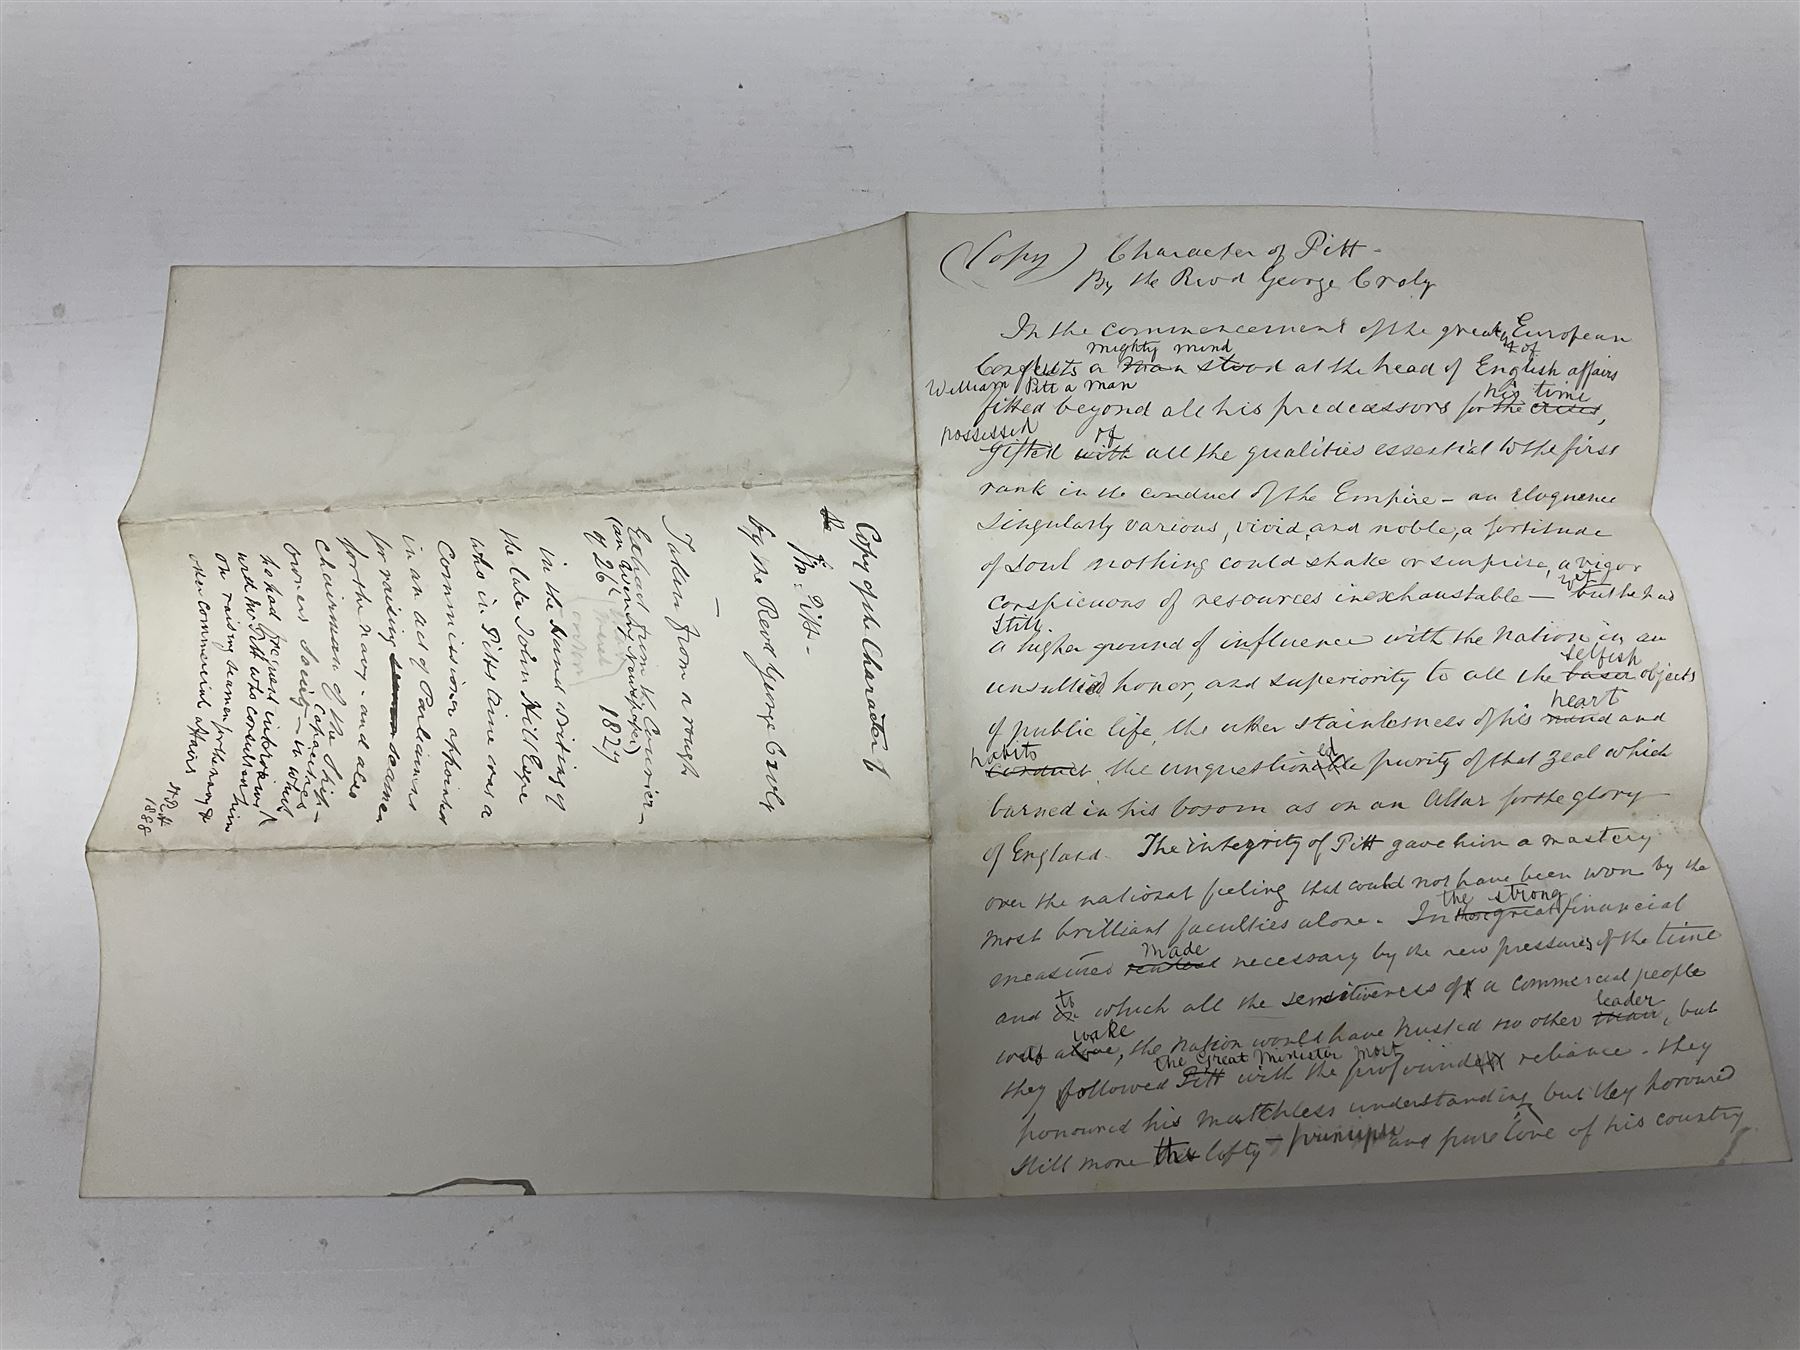 (Copy) Character of Pitt -
By the Revd George Croly
In the commencement of the great European
mighty mind
Conflicts a man stood at the head of English affairs
William Pitt a man
his time
fitted beyond all his predecessors for the crisis,
possessed of
gifted with all the qualities essential to the first
rank in the conduct of the Empire - an eloquence
singularly various, vivid, and noble, a fortitude
of soul nothing could shake or surprise, a vigor
yet
conspicuous of resources inexhaustable - but he had
still
a higher ground of influence with the Nation in an
selfish
unsullied honor, and superiority to all the baser objects
heart
of public life, the utter stainlesness of his mind and
habits
conduct, the unquestionable purity of that zeal which
burned in his bosom as on an Altar for the glory
of England. The integrity of Pitt gave him a mastery
over the national feeling that could not have been won by the
the strong
most brilliant faculties alone. In those great financial
made
measures rendered necessary by the new pressures of the time
to
and in which all the sensitiveness of a commercial people
wake leader
was alive, the Nation would have trusted no other man, but
the Great Minister most
they followed Pitt with the profoundest reliance. They
honoured his matchless understanding but they honoured
still more the lofty - principle and pure love of his country
Copy of the Character of
Mr. Pitt -
by the Revd George Croly
—
Taken from a rough
Extract from the Courier -
(an evening newspaper)
of 26 1827
in the hand writing of
the late John Hill Esqre
who in Pitts time was a
Commissioner appointed
in an act of Parliament
for raising seamen seamen
for the navy - and also
Chairman of the Ship-
owners Society - in which
capacities
he had frequent interviews
with Mr Pitt who consulted him
on raising seamen for the navy &
other commercial affairs
1888